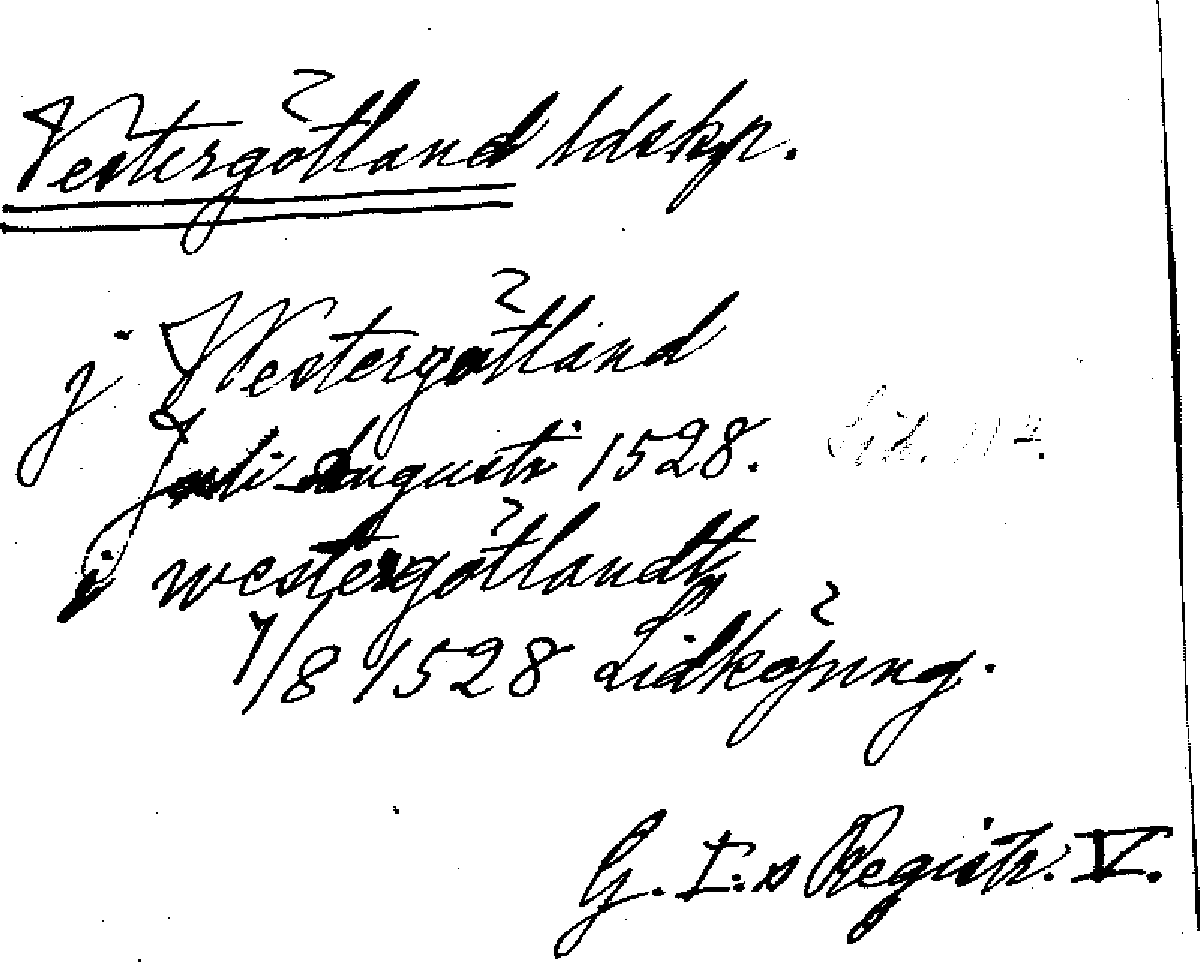 Vestergötland ldskp.
j Westergötland
Juli-Augusti 1528. Sid. 112.
i westergötlandh
7/8 1528 Lidköping.
G. I:s Registr. V.